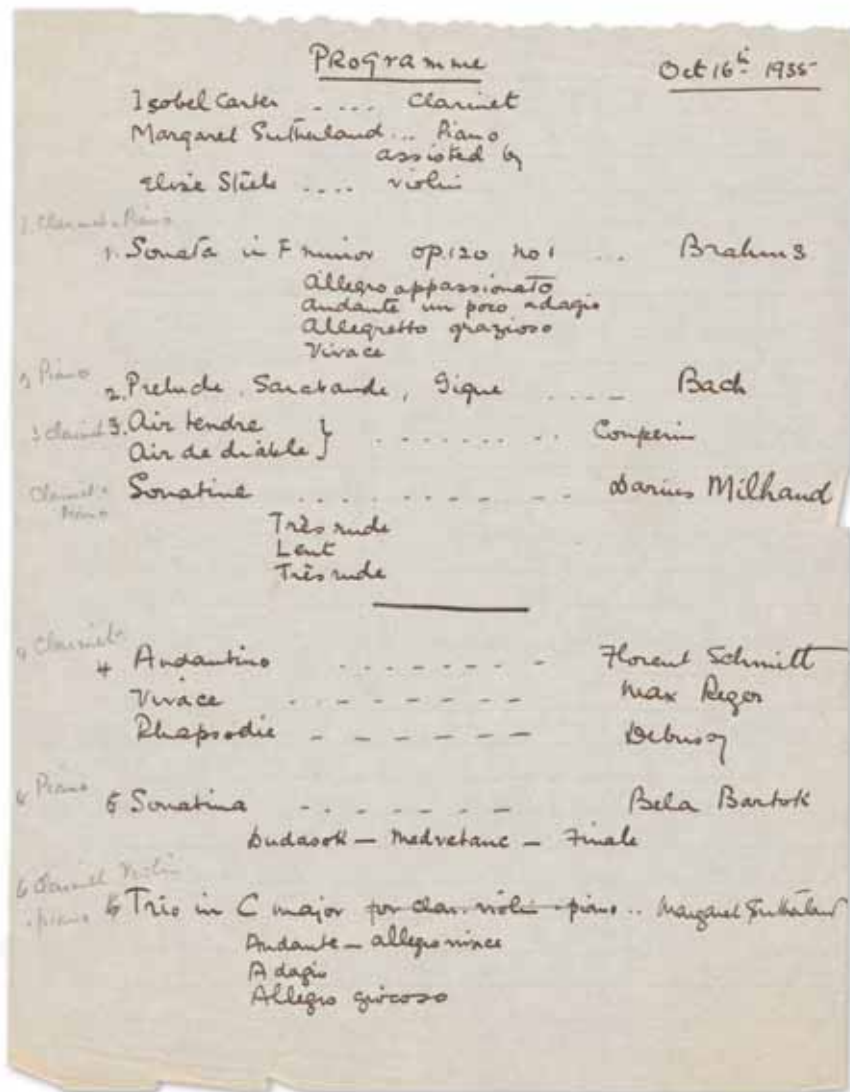 Programme
Oct 16th 1935
Isobel Carter .... Clarinet
Margaret Sutherland ... Piano
assisted by
Elsie Steele .... violin
1. Clarinet + Piano
1. Sonata in F minor op.120 no 1 ... Brahms
Allegro appassionato
Andante un poco adagio
Allegretto grazioso
Vivace
Piano
2. Prelude, Sarabande, Gigue .... Bach
3 Clarinet
3. Air tendre
Air de diable } ........ Couperin
Clarinet +
Piano
Sonatine ........... Darius Milhaud
Très rude
Lent
Très rude
Clarinet
4 Andantino ........ Florent Schmitt
Vivace ........ Max Reger
Rhapsodie - - - - - - - Debussy
Piano
5 Sonatina ....... Bela Bartok
Dudasok — Medvetanc — Finale
6 Clarinet Violin
piano
6 Trio in C major for clar. violin piano .. Margaret Sutherland
Andante — allegro vivace
Adagio
Allegro giocoso